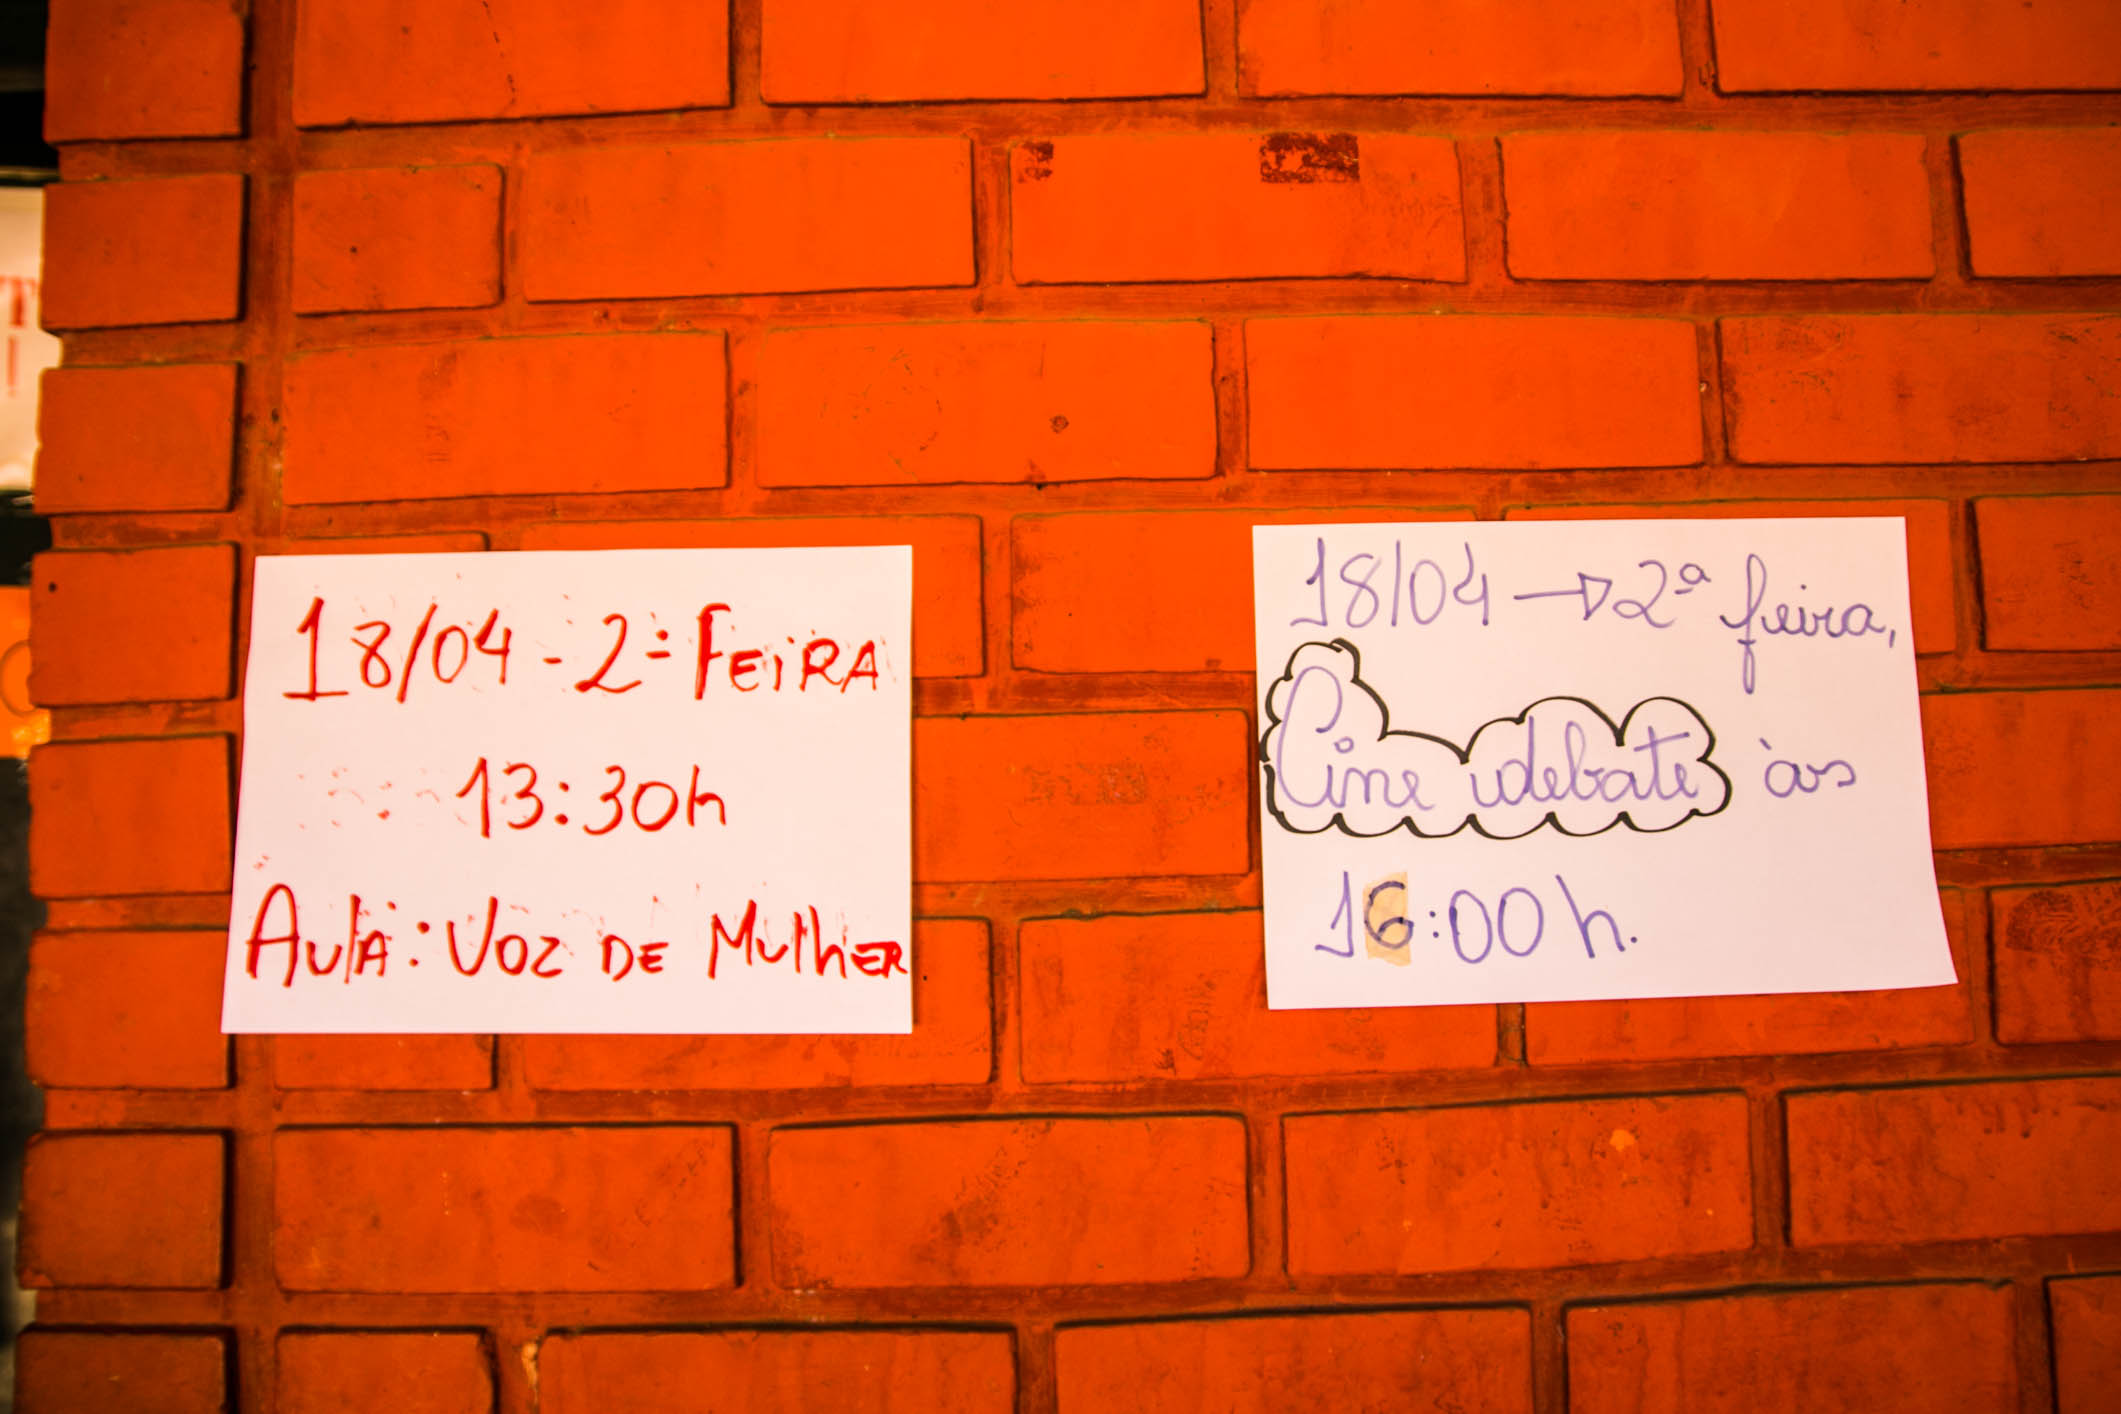 18/04 - 2ª FEIRA
13:30h
AULA: VOZ DE MULHER
18/04 → 2ª feira,
Cine debate às
16:00 h.